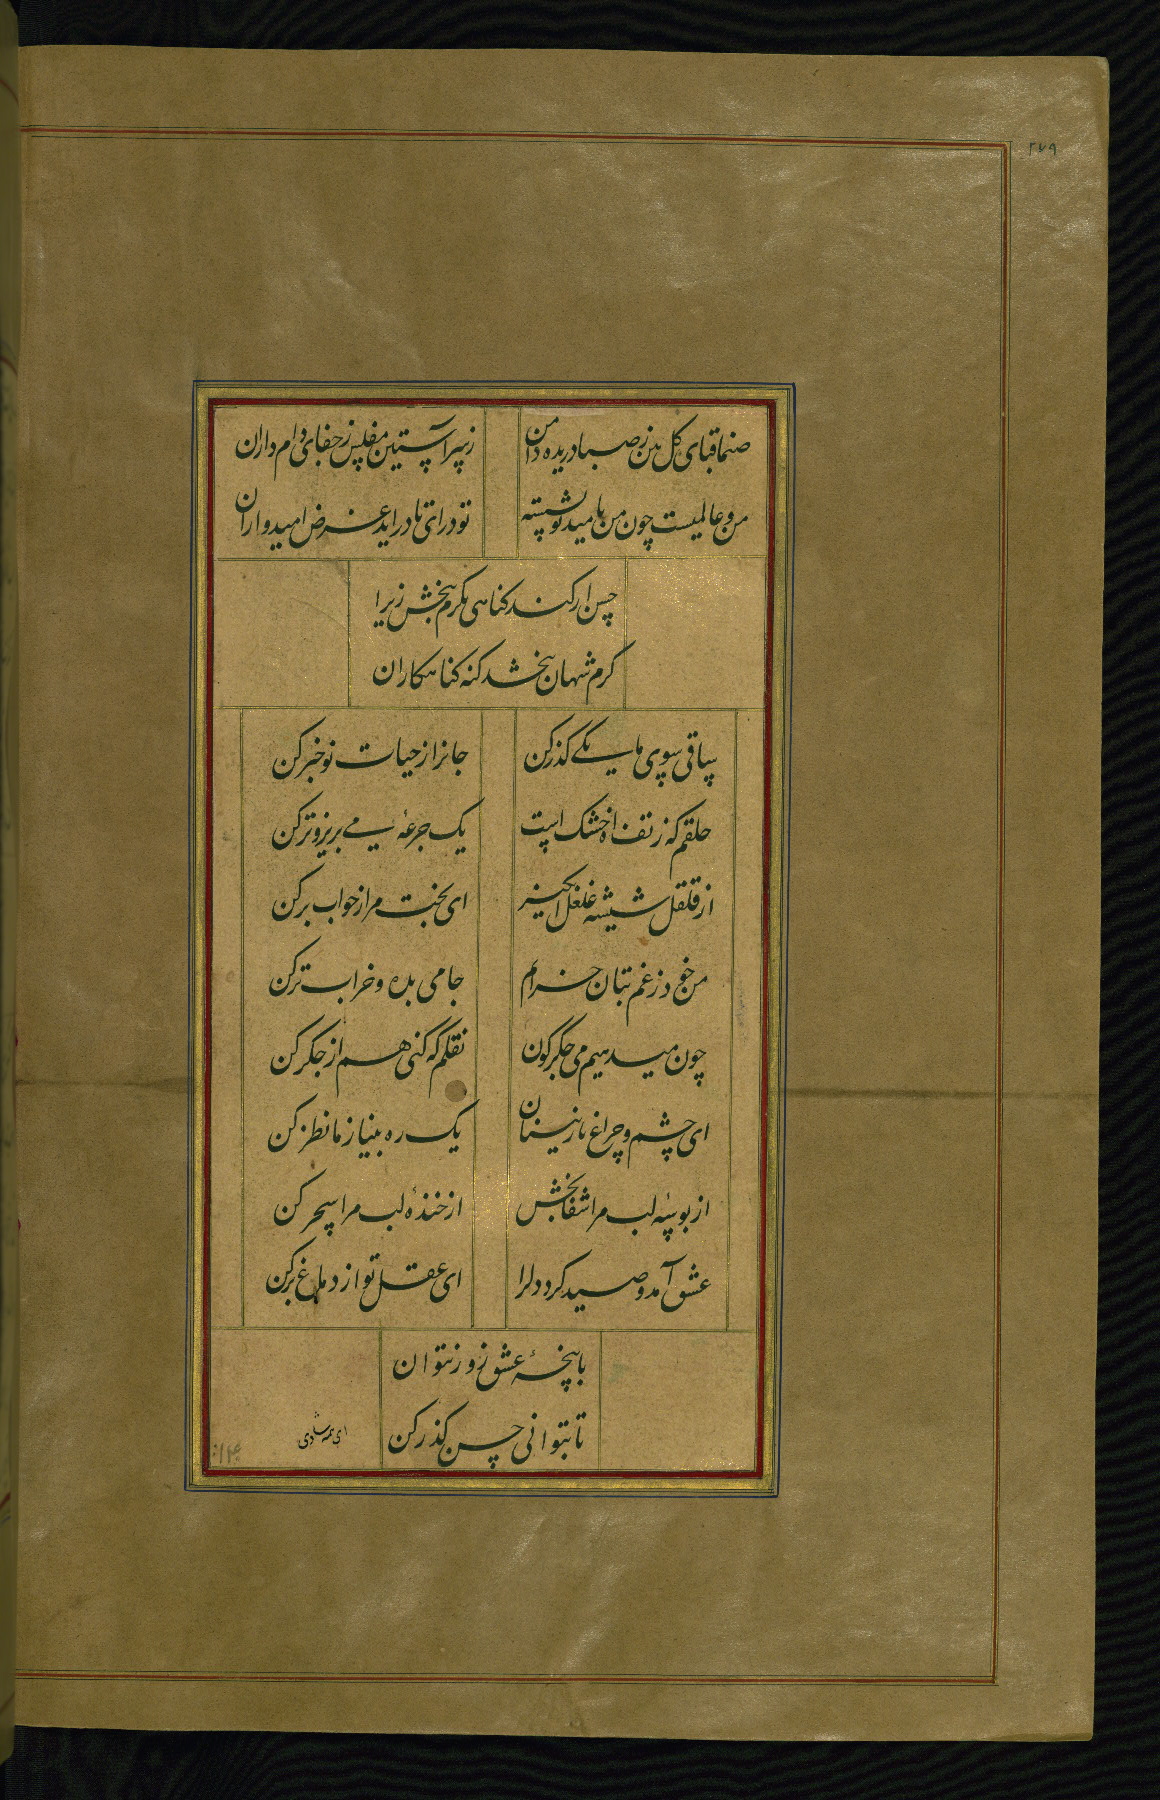 ۲۶۹
صنما قبای گل بدن ز صبا دریده دامن
ز سر آستین مفلس ز جفای وام داران
من و عالمیست چون من بامید تو نشسته
تو درآی تا دراید غرض امیدواران
حسن ار کند کناهی بکرم ببخش زیرا
کرم شهان ببخشد کنه کناهکاران
ساقی سوی ما یکی کذر کن
جانرا ز حیات نو خبر کن
حلقم که ز تف آه خشک است
یک جرعهٔ می بریز و تر کن
از قلقل شیشه غلغل انگیز
ای بخت مرا ز خواب بر کن
من خود ز غم بتان خرابم
جامی بده و خراب تر کن
چون میدهیم می جگرگون
نقلم که کنی هم از جکر کن
ای چشم و چراغ نازنینان
یک ره بنیاز ما نظر کن
از بوسهٔ لب مرا شفا بخش
از خندهٔ لب مرا سحر کن
عشق آمد و صید کرد دلرا
ای عقل تو از دماغ بر کن
با پنجهٔ عشق زور نتوان
تا بتوانی حسن کذر کن
ای همه شادی